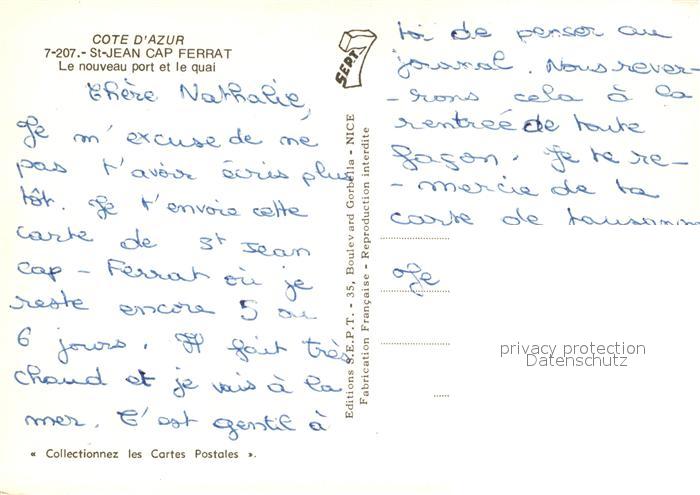 COTE D'AZUR
7-207.- St-JEAN CAP FERRAT
Le nouveau port et le quai
Chère Nathalie,
Je m'excuse de ne
pas t'avoir écris plus
tôt. Je t'envoie cette
carte de St Jean
Cap - Ferrat où je
reste encore 5 ou
6 jours. Il fait très
chaud et je vais à la
mer. C'est gentil à
« Collectionnez les Cartes Postales ».
SEPT 7
Editions S.E.P.T. - 35, Boulevard Gorbella - NICE
Fabrication Française - Reproduction interdite
toi de penser au
journal. Nous rever-
-rons cela à la
rentrée de toute
façon. Je te re-
-mercie de ta
carte de
Je
privacy protection
Datenschutz